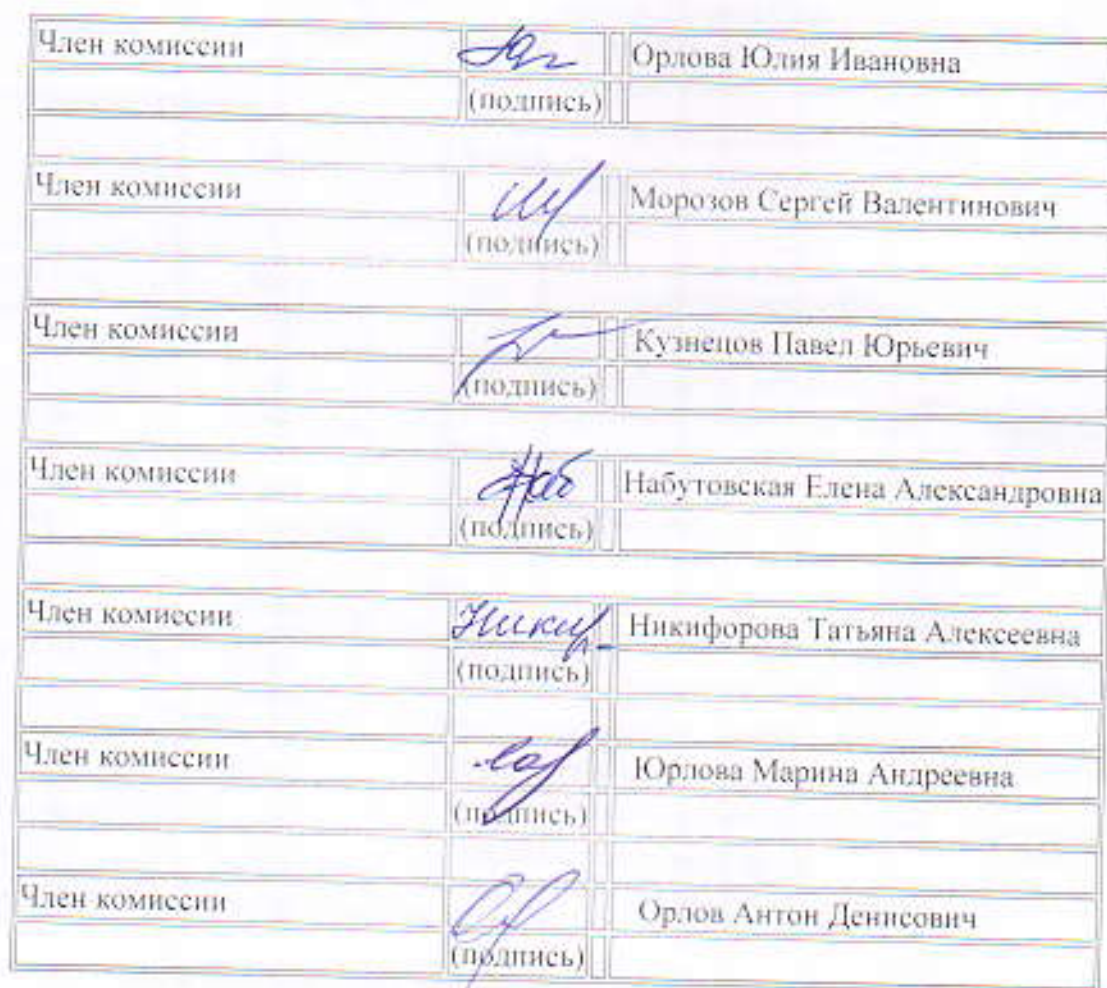 Член комиссии Орлова Юлия Ивановна
(подпись)
Член комиссии Морозов Сергей Валентинович
(подпись)
Член комиссии Кузнецов Павел Юрьевич
(подпись)
Член комиссии Наб Набутовская Елена Александровна
(подпись)
Член комиссии Никиф Никифорова Татьяна Алексеевна
(подпись)
Член комиссии Юрлова Марина Андреевна
(подпись)
Член комиссии Орлов Антон Денисович
(подпись)